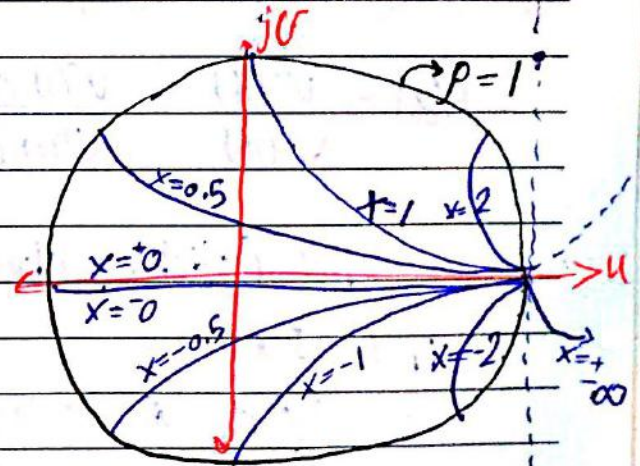 jv
ρ=1
x=0.5
x=1
x=2
x=⁺0
u
x=⁻0
x=-0.5
x=-1
x=-2
x=±∞